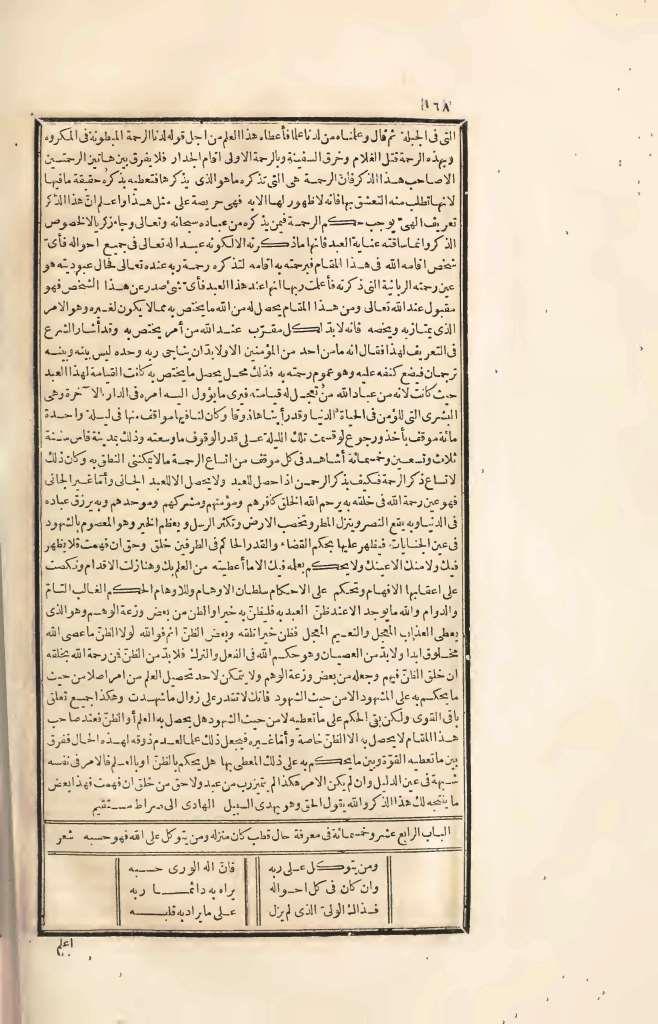 ١٦٨
التي في الجبلة ثم قال وعلمناه من لدنا علما فأعطاه هذا العلم من اجل قوله لدنا الرحمة المبطونة في المكروه
وبهذه الرحمة قتل الغلام وخرق السفينة وبالرحمة الاولى اقام الجدار فلا يفرق بين هاتين الرحمتين
الاصاحب هذا الذكر فان الرحمة هي التي تذكره ماهو الذي يذكرها فتعطيه بذكره حقيقة مافيها
لانها تطلب منه التعشق بها فانه لا ظهور لها الا به فهي حريصة على مثل هذا واعلم ان هذا الذكر
تعريف الهي بوجوب حكم الرحمة فيمن يذكره من عباده سبحانه وتعالى وجاء زكريا لالخصوص
الذكر وانما ساقته عناية العبد فانها ما ذكرته الالكونه عبدا له تعالى في جميع احواله فأي
شخص اقامه الله في هذا المقام فبرحمته به اقامه لتذكره رحمة ربه عنده تعالى فحال عبوديته هو
عين رحمته الربانية التي ذكرته فأعلت ربها انها عند هذا العبد فأي شئ صدر عن هذا الشخص فهو
مقبول عند الله تعالى ومن هذا المقام يحصل له من الله ما يختص به مما لا يكون لغيره وهو الامر
الذي يمتاز به ويخصه فانه لا بد لكل مقرب عند الله من أمر يختص به وقد أشار الشرع
في التعريف لهذا فقال انه ما من احد من المؤمنين الاولابد ان يناجي ربه وحده ليس بينه وبينه
ترجمان فيضع كنفه عليه وهو عموم رحمته به فذلك محل يحصل ما يختص به كانت القيامة لهذا العبد
حيث كانت لانه من عباد الله من تعجل له قيامته فيرى ما يؤول اليه امره في الدار الآخرة وهي
البشرى التي للمؤمن في الحياة الدنيا وقد رأيناها ذوقا وكان لنا فيها مواقف منها في ليلة واحدة
مائة موقف بأخذ ورجوع لو قسمت تلك الليلة على قدر الوقوف ما وسعته وذلك بمدينة فاس سنة
ثلاث وتسعين وخمسمائة أشاهد في كل موقف من اتساع الرحمة ما لا يمكنني النطق به وكان ذلك
لاتساع ذكر الرحمة فكيف بذكر الرحمن اذا حصل للعبد ولا يحصل الا للعبد الجاني وأما غير الجاني
فهو عين رحمة الله في خلقه به يرحم الله الخلق كافرهم ومؤمنهم ومشركهم وموحدهم وبه يرزق عباده
في الدنيا وبه يقع النصر وينزل المطر وتخصب الارض وتكثر الرسل ويعظم الخير وهو المعصوم بالشهود
في عين الجنايات فيظهر عليها بحكم القضاء والقدر الحاكم في الطرفين خلق وحق ان فهمت فلا يظهر
فيك ولا منك الا عينك ولا يحكم بعلمه فيك الا ما أعطيته من العلم بك وهنا زلت الاقدام ونكصت
على اعقابها الافهام وتحكم على الاحكام سلطان الاوهام وللاوهام الحكم الغالب التام
والدوام والله ما يوجد الا عند ظن العبد به فليظن به خيرا والظن من بعض وزعة الوهم وهو الذي
يعطى العذاب المعجل والنعيم المعجل فظن خيرا تلقه وبعض الظن اثم فوالله لولا الظن ما عصى الله
مخلوق ابدا ولا بد من العصيان وهو حكم الله في الفعل والترك فلا بد من الظن فمن رحمة الله بخلقه
ان خلق الظن فيهم وجعله من بعض وزعة الوهم ولا يتمكن لاحد تحصيل العلم من امر اصلا من حيث
ما يحكم به على المشهود الا من حيث الشهود فانك لا تقدر على زوال ما شهدت وهكذا جميع تعلق
باقي القوى ولكن بقي الحكم على ما تعطيه لا من حيث الشهود هل يحصل به العلم أو الظن فعند صاحب
هذا المقام لا يحصل به الا الظن خاصة وأما غيره فيجعل ذلك علما لعدم ذوقه لهذه الحال ففرق
بين ما تعطيه القوة وبين ما يحكم به على ذلك المعطى بها هل يحكم بالظن او بالعلم فالامر في نفسه
شبهة في عين الدليل وان لم يكن الامر هكذا لم يتميز رب من عبد ولا حق من خلق ان فهمت فهذا بعض
ما ينتجه لك هذا الذكر والله يقول الحق وهو يهدي السبيل الهادي الى صراط مستقيم
الباب الرابع عشر وخمسمائة في معرفة حال قطب كان منزله ومن يتوكل على الله فهو حسبه شعر
ومن يتوكل على ربه فان اله الورى حسبه
وان كان في كل احواله يراه به دائما ربه
فذاك الولي الذي لم يزل على ما يراد به قلبه
اعلم